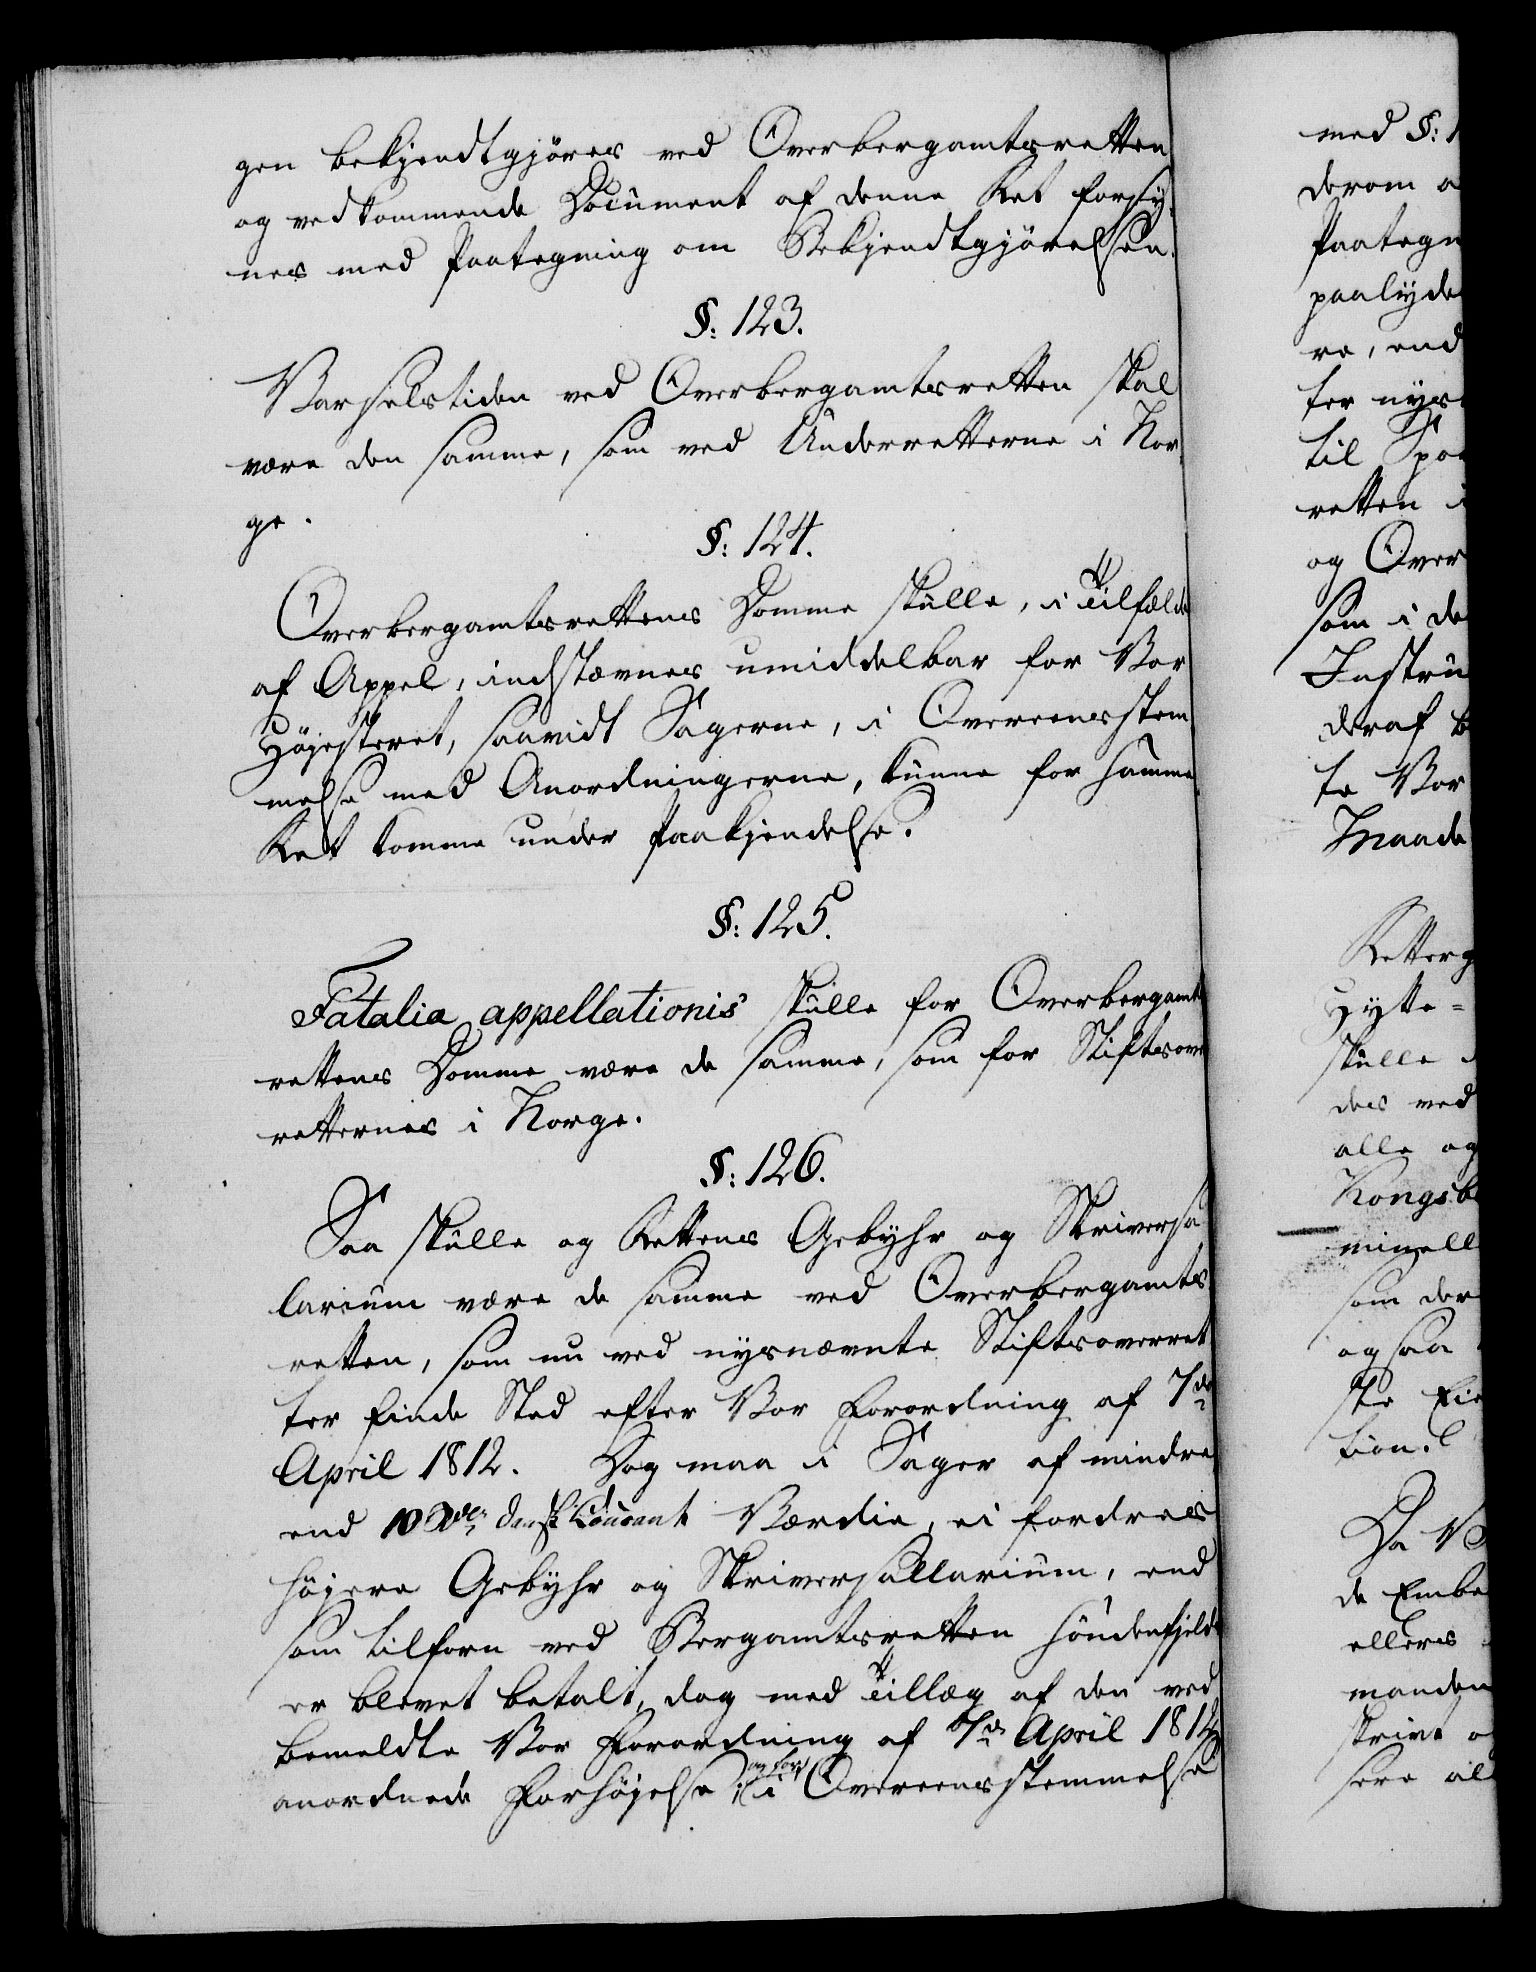 gen bekjendtgjöres ved Overbergamtsretten
og vedkommende Document af denne Ret forsy-
nes med Paategning om Bekjendtgjörelsen.
§: 123.
Varselstiden ved Overbergamtsretten skal
være den samme, som ved Underretterne i Nor-
ge.
§: 124.
Overbergamtsrettens Domme skulle, i Tilfælde
af Appel, indstævnes umiddelbar for Vor
Höjesteret, saavidt Sagerne, i Overeensstem
melse med Anordningerne, kunne for samme
Ret komme under Paakjendelse.
§: 125.
Fatalia appellationis skulle for Overbergamts
rettens Domme være de samme, som for Stiftsover
retternes i Norge.
§: 126.
Saa skulle og Rettens Gebyhr og Skriversa
larium være de samme ved Overbergamts
retten, som nu ved nysnævnte Stiftsoverret
ter finde Sted efter Vor Forordning af 7de
April 1812. Dog maa i Sager af mindre
end 10 Rdlr dansk Courant Værdie, ei fordres
höjere Gebyhr og Skriversallarium, end
som tilforn ved Bergamtsretten söndenfjelds
er blevet betalt, dog med Tillæg af den ved
bemeldte Vor Forordning af 7de April 1812
anordnede Forhöjelse; og for i Overeensstemmelse
med §: 1
derom a
Paategn
paalyde
re, end
ter nys
til Spo
retten i
og Over
som i de
Instru
deraf b
te Vor
Maade
Retterg
Hytte-
skulle
des ved
alle og
Kongsb
minell
som der
ogsaa
ste Eie
tion.
Da V
de Embe
ellers
manden
skrivt o
sere al